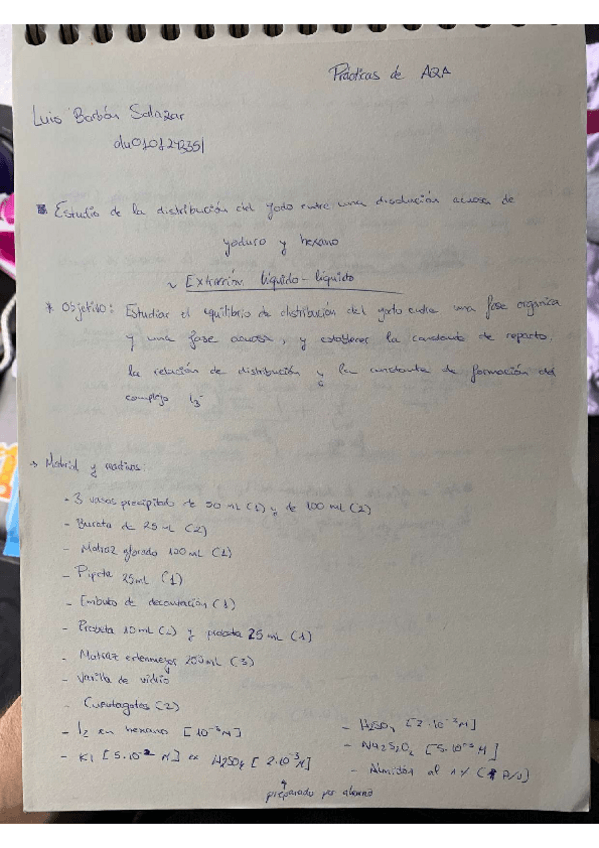 Prácticas de AQA
Luis Borbón Salazar
alu0101242351
Estudio de la distribución del yodo entre una disolución acuosa de
yoduro y hexano
~ Extracción líquido-líquido
* Objetivo: Estudiar el equilibrio de distribución del yodo entre una fase orgánica
y una fase acuosa, y establecer la constante de reparto,
la relación de distribución y la constante de formación del
complejo I3-
→ Material y reactivos:
- 3 vasos precipitado de 50 mL (1) y de 100 mL (2)
- Bureta de 25 mL (2)
- Matraz aforado 100 mL (1)
- Pipeta 25mL (1)
- Embudo de decantación (1)
- Probeta 10mL y probeta 25 mL (1)
- Matraz erlenmeyer 250mL (3)
- Varilla de vidrio
- Cuentagotas (2)
- I2 en hexano [10⁻³M]
- KI [5·10⁻² M] en H2SO4 [2·10⁻³M]
preparado por alumno
- H2SO4 [2·10⁻³M]
- Na2S2O3 [5·10⁻³M]
- Almidón al 1% (P/V)